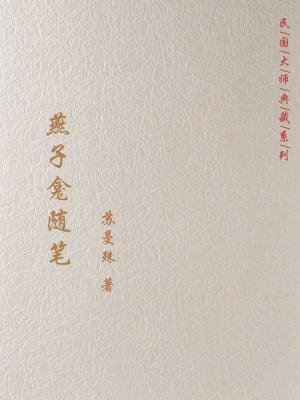 民|国|大|师|典|藏|系|列
燕子龛随笔
苏曼殊 著